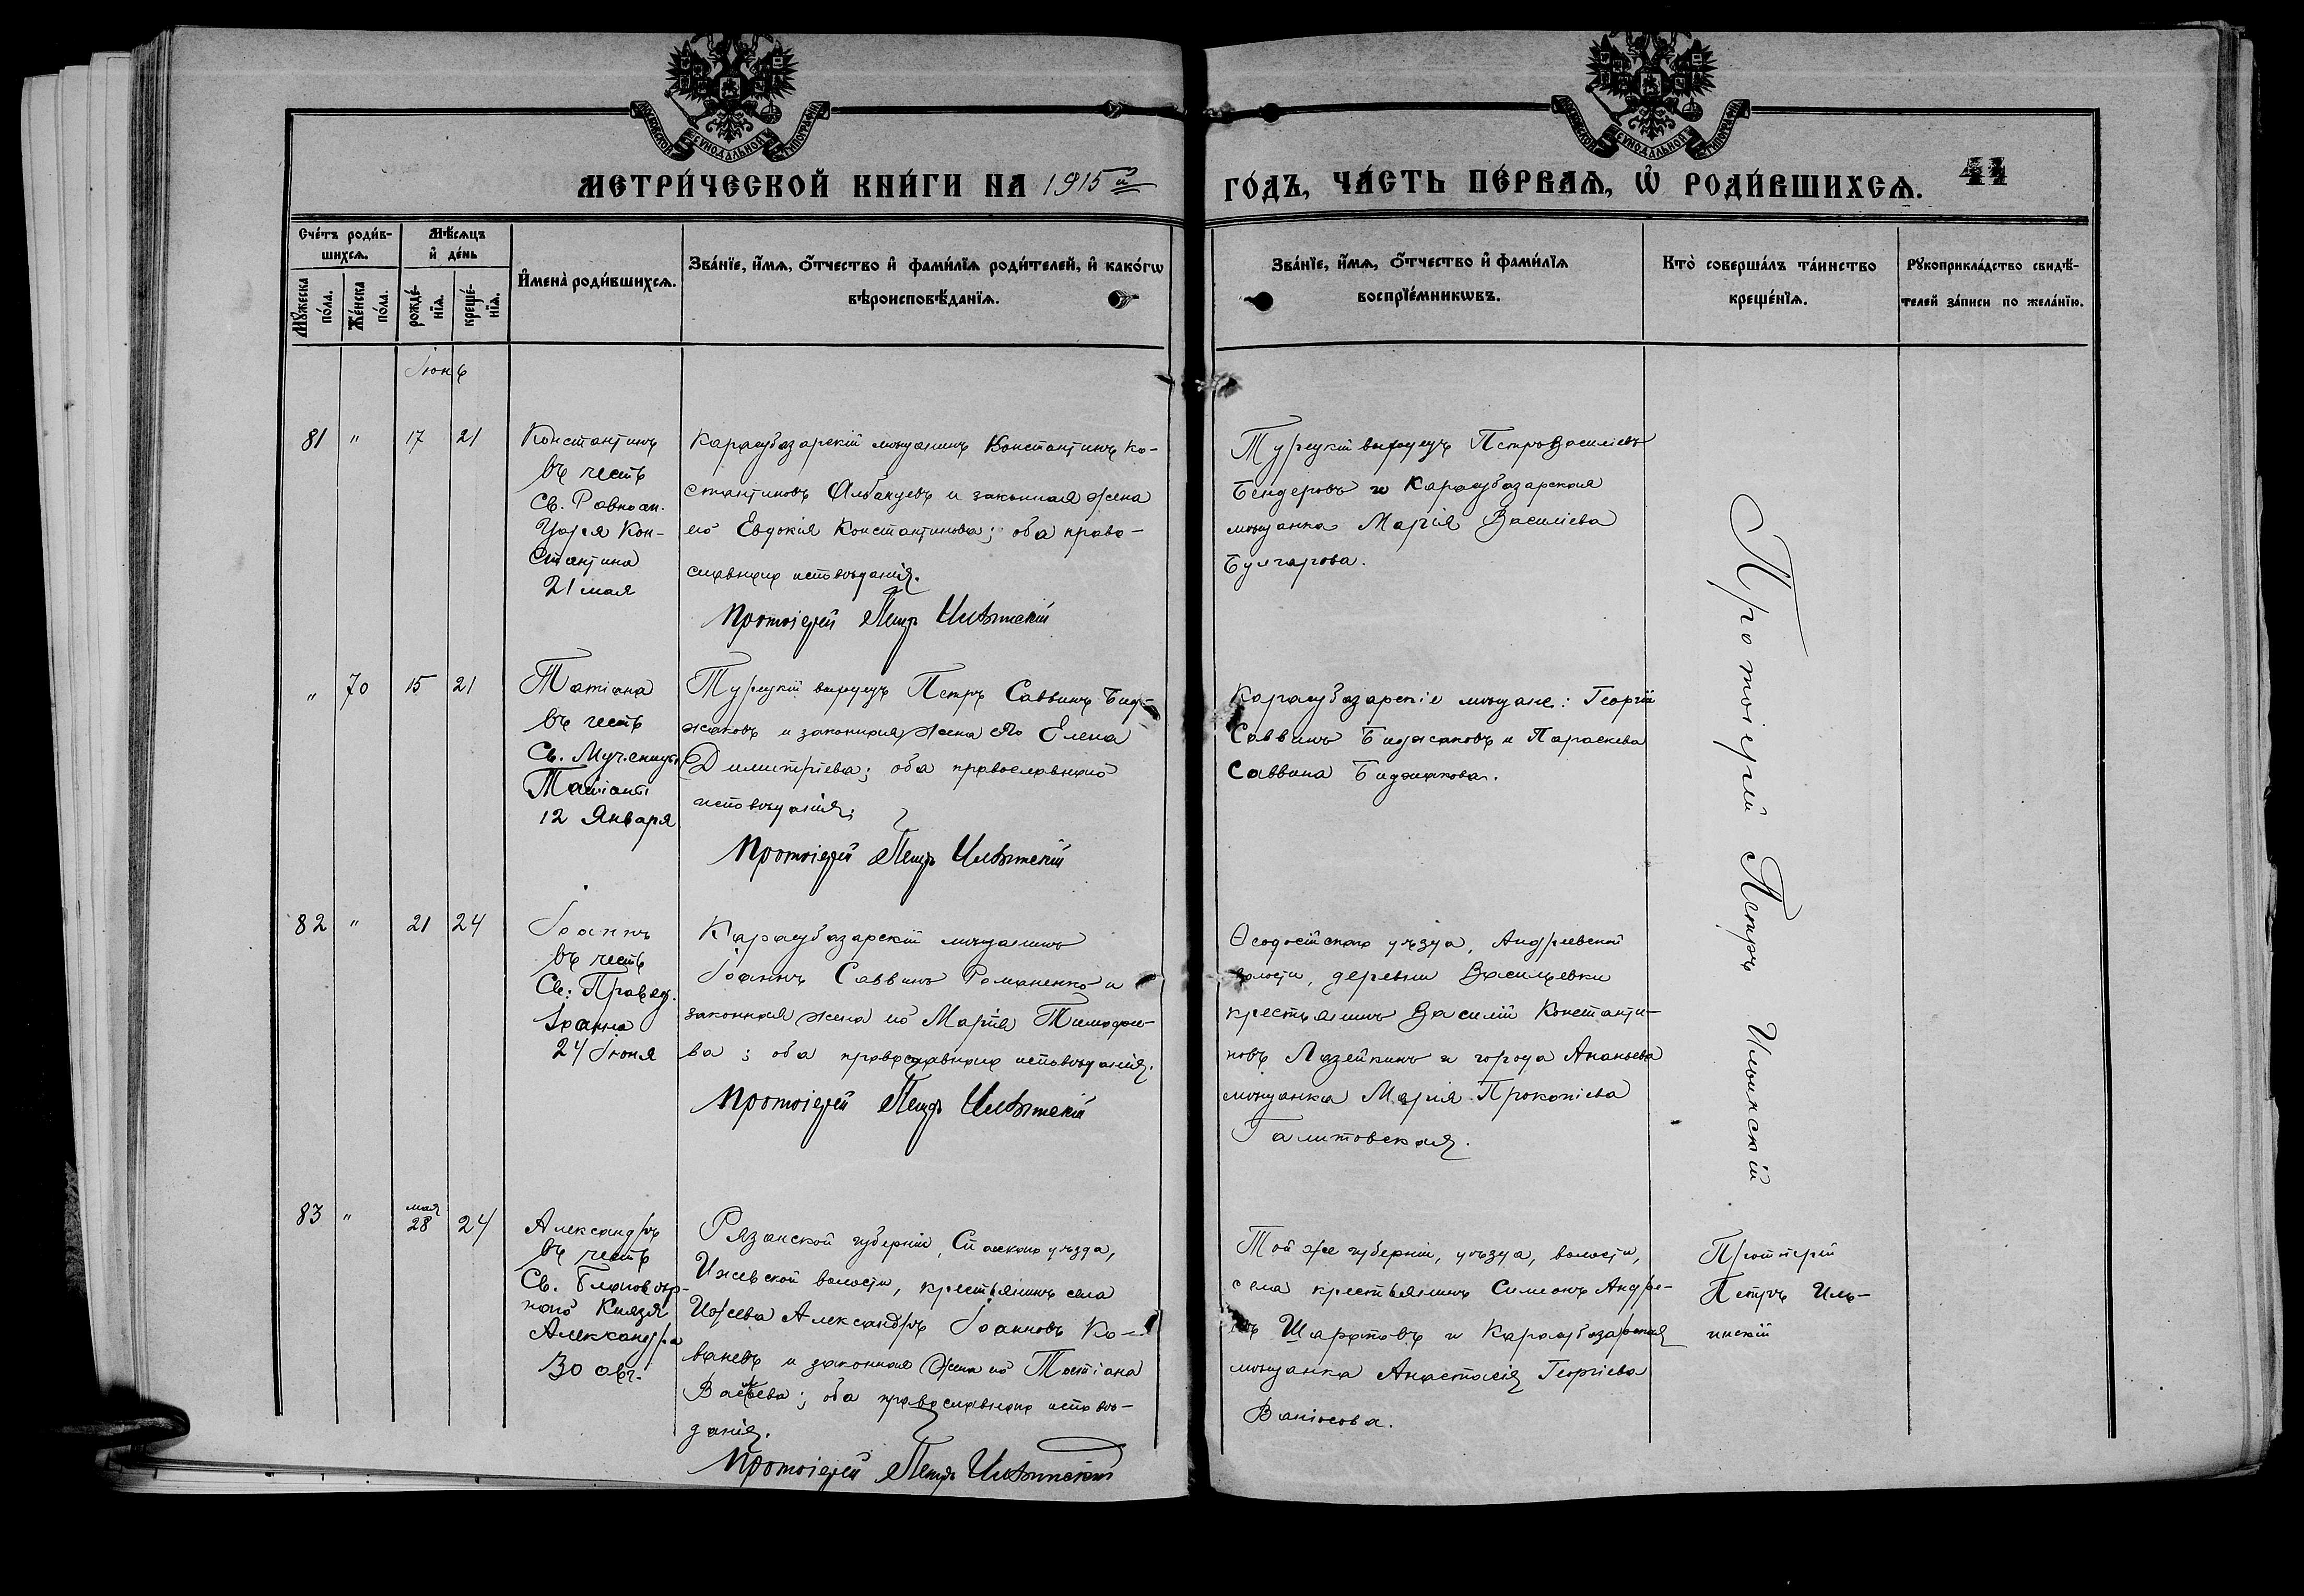 МОСКОВСКОЙ СѴНОДАЛЬНОЙ ТИПОГРАФІИ
МОСКОВСКОЙ СѴНОДАЛЬНОЙ ТИПОГРАФІИ
МЕТРИ́ЧЕСКОЙ КНИ́ГИ НА 1915й
ГО́ДЪ, ЧА́СТЬ ПЕ́РВАѦ, Ѡ҆ РОДИ́ВШИХСѦ.
Сче́тъ роди́в-
шихсѧ.
Мѣ́сѧцъ
и҆ де́нь
Мꙋ́жеска
по́ла.
Же́нска
по́ла.
рожде́-
нїѧ.
креще́-
нїѧ.
И҆мена̀ роди́вшихсѧ.
Зва́нїе, и҆́мѧ, ѻ҆́тчество и҆ фами́лїѧ роди́телей, и҆ како́гѡ
вѣроисповѣ́данїѧ.
Зва́нїе, и҆́мѧ, ѻ҆́тчество и҆ фами́лїѧ
воспрїе́мникѡвъ.
Кто̀ соверша́лъ та́инство
креще́нїѧ.
Рꙋкоприкла́дство свидѣ́-
телей за́писи по жела́нїю.
Іюнь
81 " 17 21
Константинъ
въ честь
Св. Равноап.
Царя Кон-
стантина
21 мая
Карасубазарскій мѣщанинъ Константинъ Ко-
стантиновъ Албанцевъ и законная жена
его Евдокія Константинова; оба право-
славнаго исповѣданія.
Протоіерей Петръ Ильинскій
Турецкій выходецъ Петръ Василіевъ
Бендеровъ и Карасубазарская
мѣщанка Марія Василіева
Булгарова.
" 70 15 21
Татіана
въ честь
Св. Мученицы
Татіаны
12 Января
Турецкій выходецъ Петръ Саввинъ Бид-
жаковъ и законная жена его Елена
Димитріева; оба православнаго
исповѣданія.
Протоіерей Петръ Ильинскій
Карасубазарскіе мѣщане: Георгій
Саввинъ Биджаковъ и Параскева
Саввина Биджакова.
82 " 21 24
Іоаннъ
въ честь
Св. Правед.
Іоанна
24 Іюня
Карасубазарскій мѣщанинъ
Іоаннъ Саввинъ Романенко и
законная жена его Марія Тимофее-
ва; оба православнаго исповѣданія.
Протоіерей Петръ Ильинскій
Ѳеодосійскаго уѣзда, Андреевской
волости, деревни Васильевки
крестьянинъ Василій Константи-
новъ Лазейкинъ и города Ананьева
мѣщанка Марія Прокопіева
Галитовская.
Протоіерей Петръ Ильинскій
83 " мая 28 24
Александръ
въ честь
Св. Благовѣр-
наго Князя
Александра
30 авг.
Рязанской губерніи, Спасскаго уѣзда,
Ижевской волости, крестьянинъ села
Ижева Александръ Іоанновъ Ко-
ваневъ и законная жена его Татіана
Васильева; оба православнаго исповѣ-
данія.
Протоіерей Петръ Ильинскій
Той же губерніи, уѣзда, волости,
села крестьянинъ Симеонъ Андре-
евъ Шараповъ и Карасубазарская
мѣщанка Анастасія Георгіева
Ваніосова.
Протоіерей
Петръ Иль-
инскій